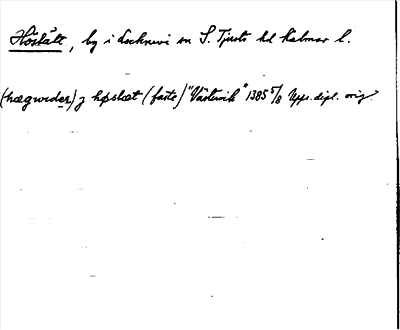 Höslätt, by i Locknevi sn S. Tjusts hd Kalmar l.
(hægwider) j høslæt (faste) "Västervik" 1385 5/8 Upps. dipl. orig.